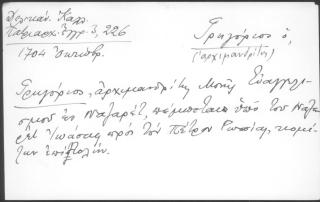 Δελικάν. Καλλ.
Πατριαρχ. Ἔγγρ. 3, 226
1704 Ὀκτωβρ.
Γρηγόριος ὁ,
(ἀρχιμανδρίτης)
Γρηγόριος, ἀρχιμανδρίτης Μονῆς Εὐαγγελι-
σμοῦ ἐν Ναζαρέτ, πέμπεται ὑπὸ τοῦ Ναζα-
ρὲτ πρὸς τὸν Πέτρον Ρωσίας, κομί-
ζων ἐπιστολήν.